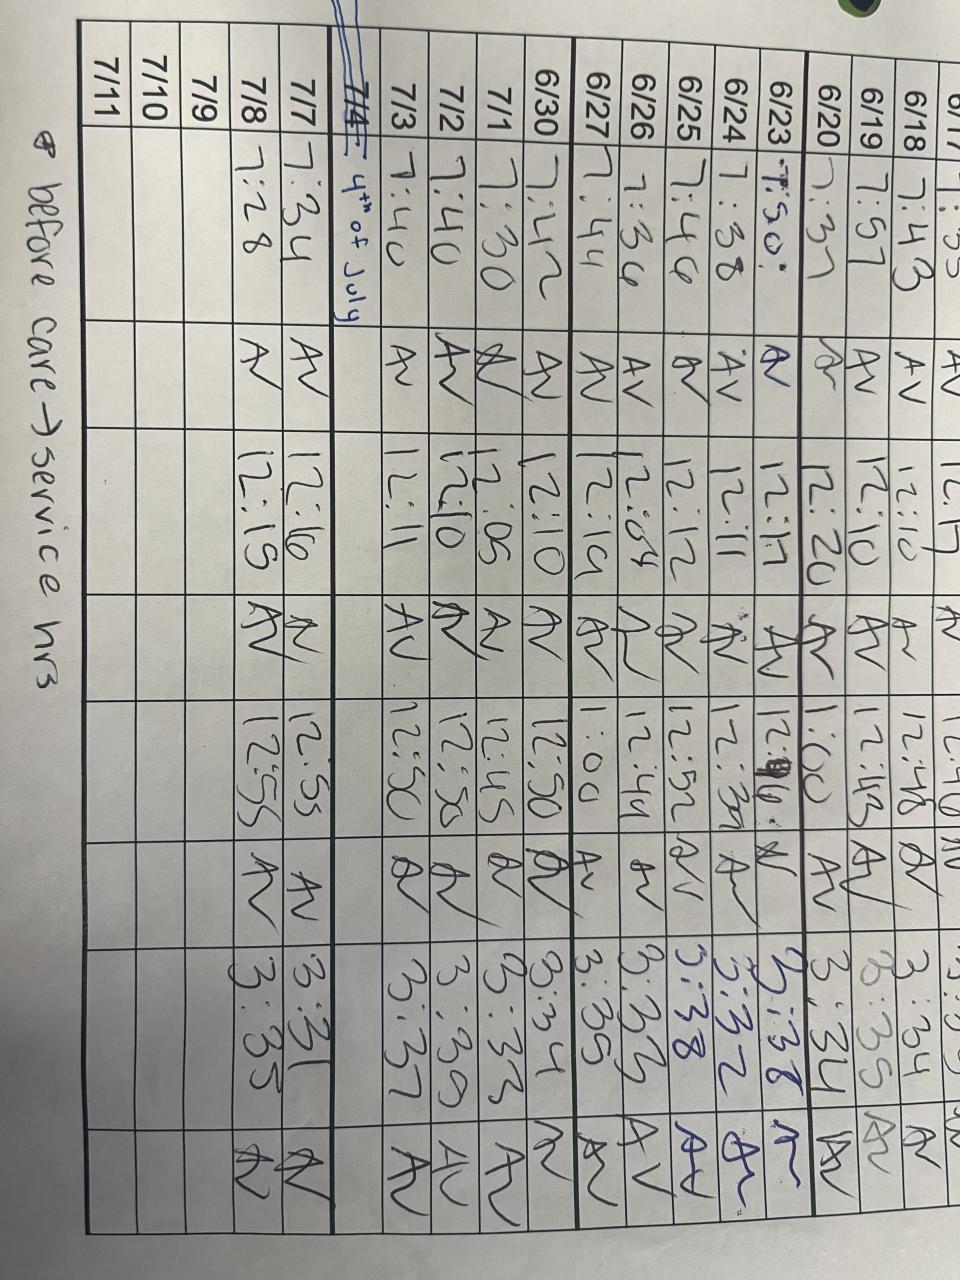 6/17 7:35 AV 12:17 AV 12:46 AV
6/18 7:43 AV 12:10 AV 12:48 AV 3:34 AV
6/19 7:57 AV 12:10 AV 12:43 AV 3:35 AV
6/20 7:37 AV 12:20 AV 1:00 AV 3:34 AV
6/23 7:50 AV 12:17 AV AV 3:38 AV
6/24 7:38 AV 12:11 AV 12:39 AV 3:32 AV
6/25 7:46 AV 12:12 AV 12:52 AV 3:38 AV
6/26 7:36 AV 12:04 AV 12:44 AV 3:33 AV
6/27 7:44 AV 12:19 AV 1:00 AV 3:35 AV
6/30 7:42 AV 12:10 AV 12:50 AV 3:34 AV
7/1 7:30 AV 12:05 AV 12:45 AV 3:33 AV
7/2 7:40 AV 12:10 AV 12:50 AV 3:39 AV
7/3 7:40 AV 12:11 AV 12:50 AV 3:37 AV
7/4 4th of July
7/7 7:34 AV 12:16 AV 12:55 AV 3:31 AV
7/8 7:28 AV 12:15 AV 12:55 AV 3:35 AV
7/9
7/10
7/11
* before care → service hrs